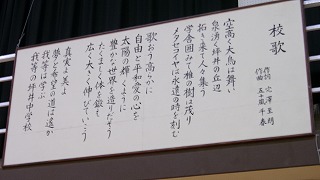 校歌
作詞 宍澤呈明
作曲 五十嵐千春
空高く大鳥は舞い
泉湧く坪井の丘辺
拓く未来へ人々集う
学舎囲みて椎の樹は茂り
メタセコイヤは永遠の時を刻む
歌おう高らかに
自由と平和愛の心を
太陽の輝くように
豊かな世界を造りだそう
たくましく体を鍛え
広く大きく伸びていこう
真実よ美よ
夢と希望の道は遙か
我等は学ぶ
我等の坪井中学校